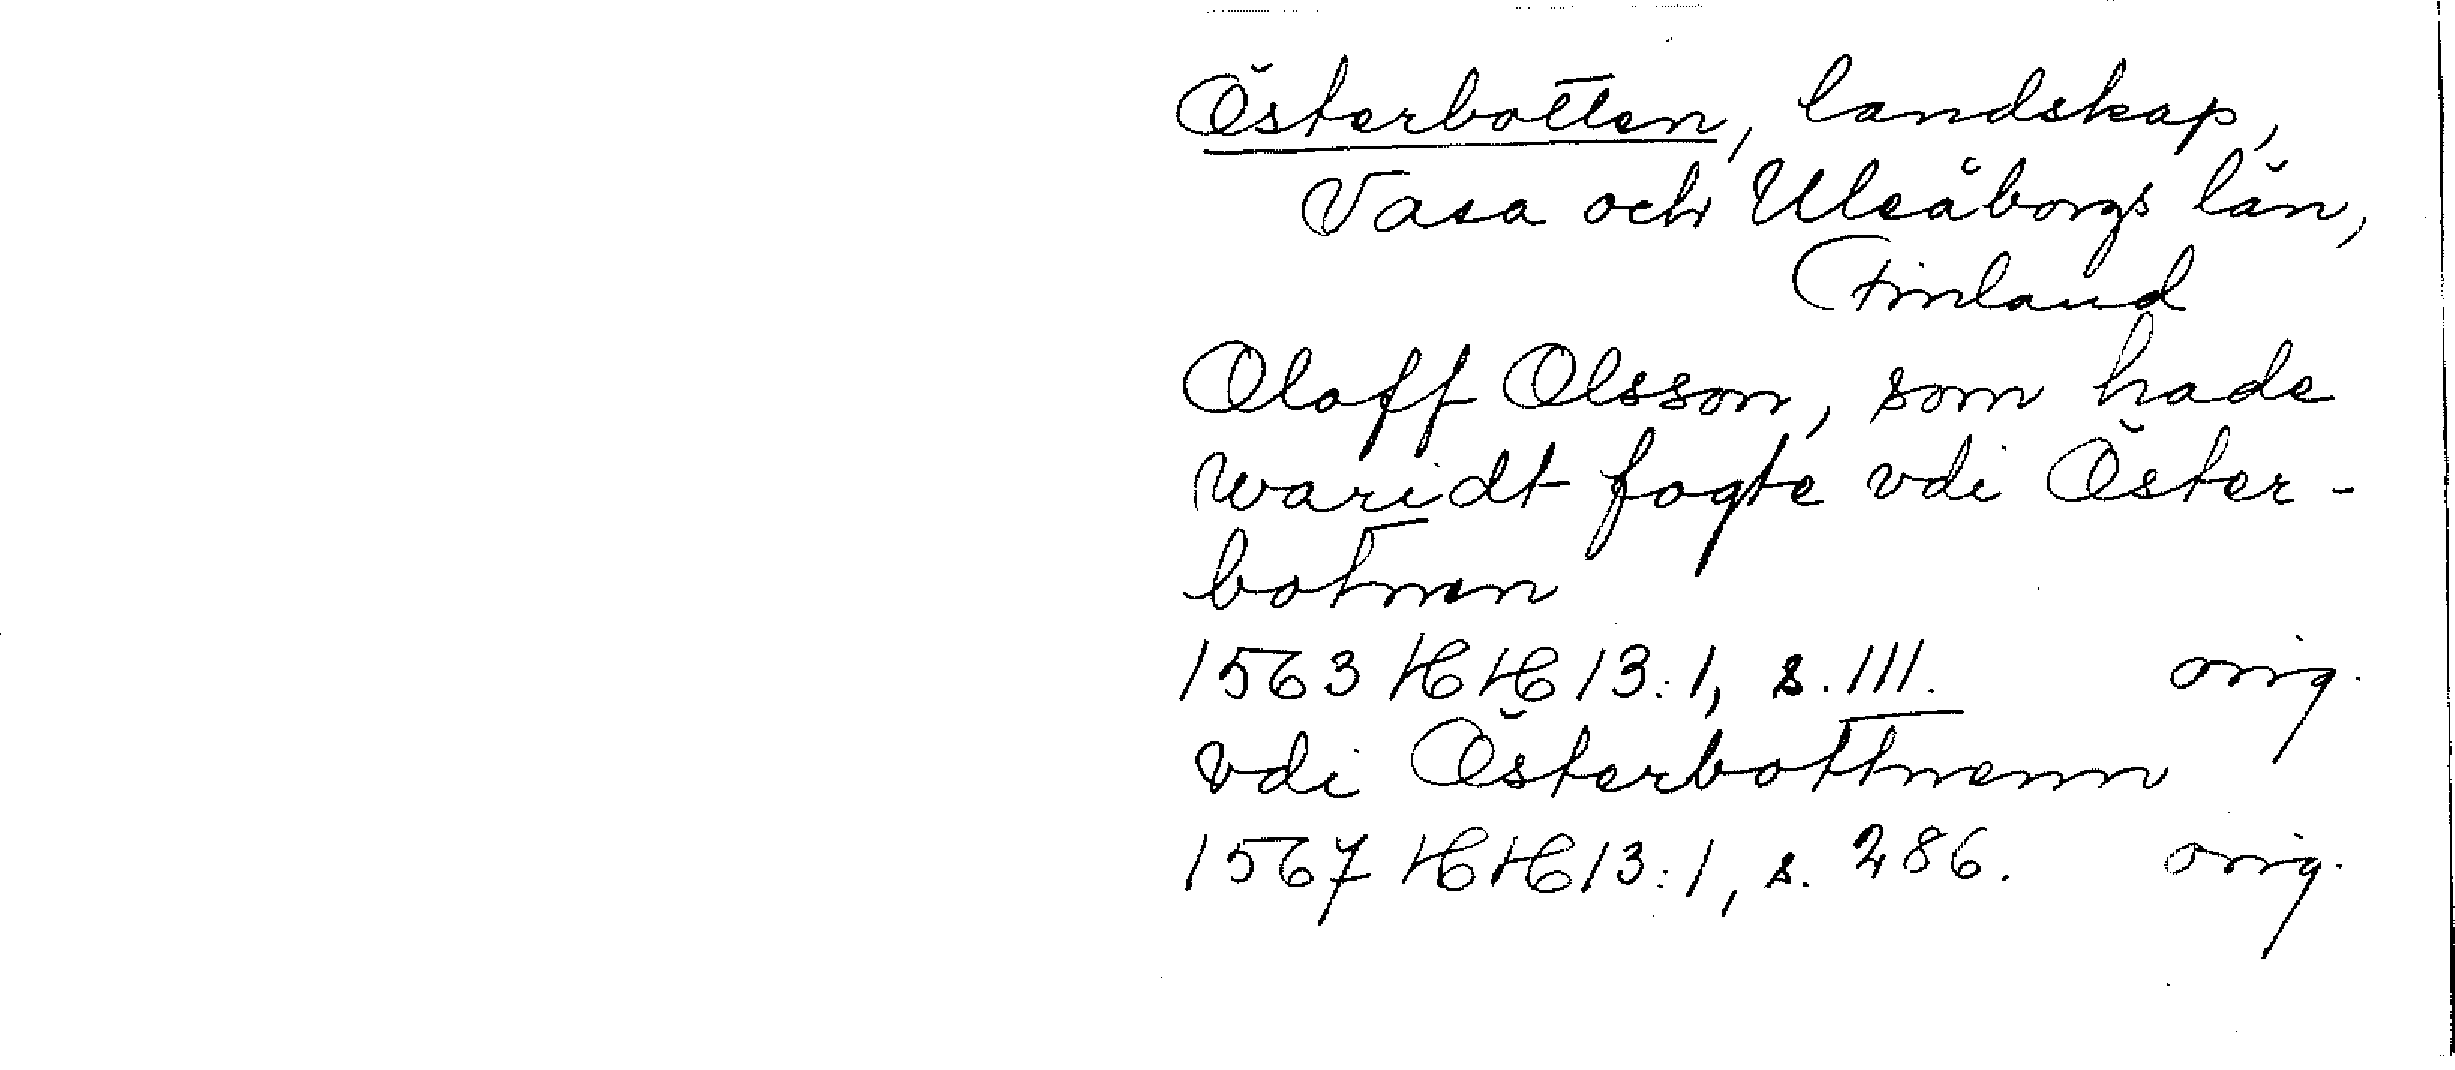 Österbotten, landskap,
Vasa och Uleåborgs län,
Finland
Oloff Olsson, som hade
waridt fogte vdi Öster-
botnen
1563 HH 13:1, s. 111. orig.
vdi Österbottnenn
1567 HH 13:1, s. 286. orig.